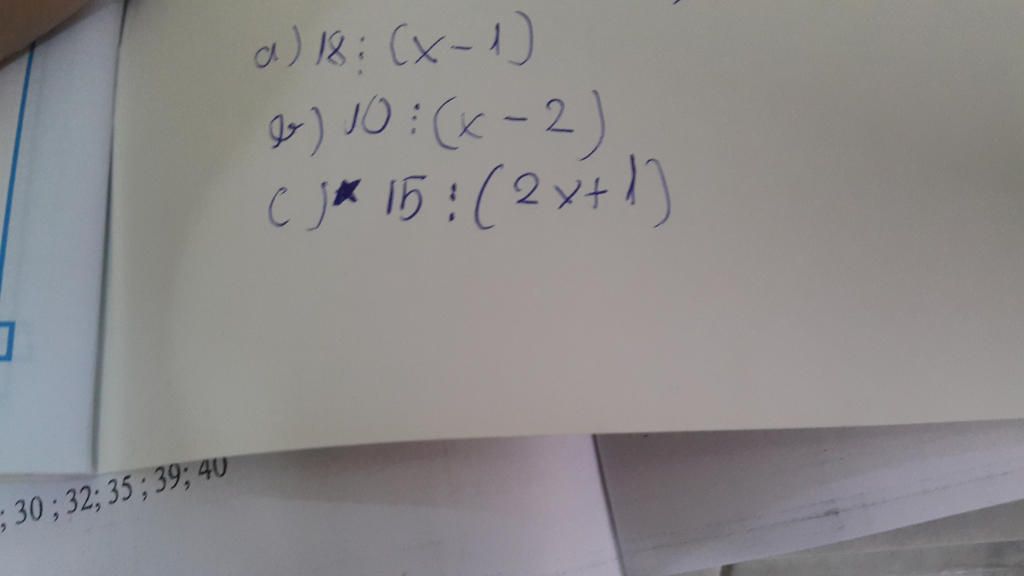 a) 18 ⋮ (x - 1)
b) 10 ⋮ (x - 2)
c) 15 ⋮ (2x + 1)
; 30 ; 32; 35 ; 39; 40